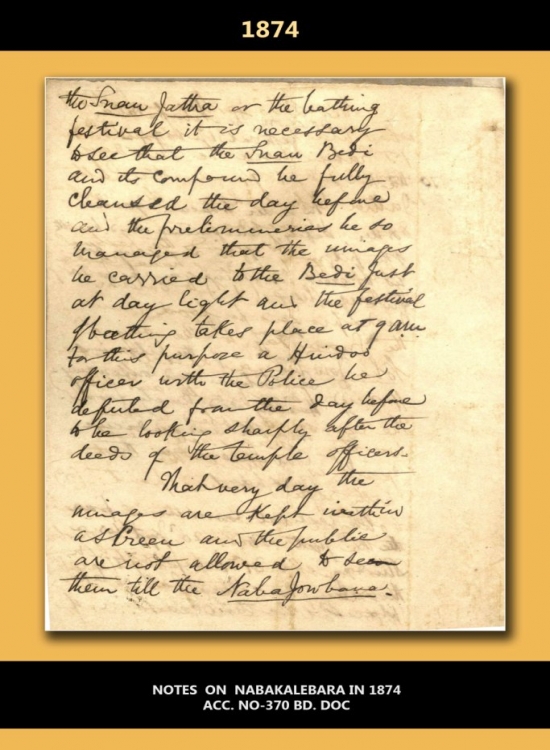 1874
the Snan Jattra or the bathing
festival it is necessary
to see that the Snan Bedi
and its compound be fully
cleansed the day before
and the preliminaries be so
managed that the images
be carried to the Bedi just
at day light and the festival
of bathing takes place at 9 a.m.
For this purpose a Hindoo
officer with the Police be
deputed from the day before
to be looking sharply after the
deeds of the temple officers.
That very day the
images are kept within
a Screen and the public
are not allowed to seen
them till the Naba Jowbana.
NOTES ON NABAKALEBARA IN 1874
ACC. NO-370 BD. DOC